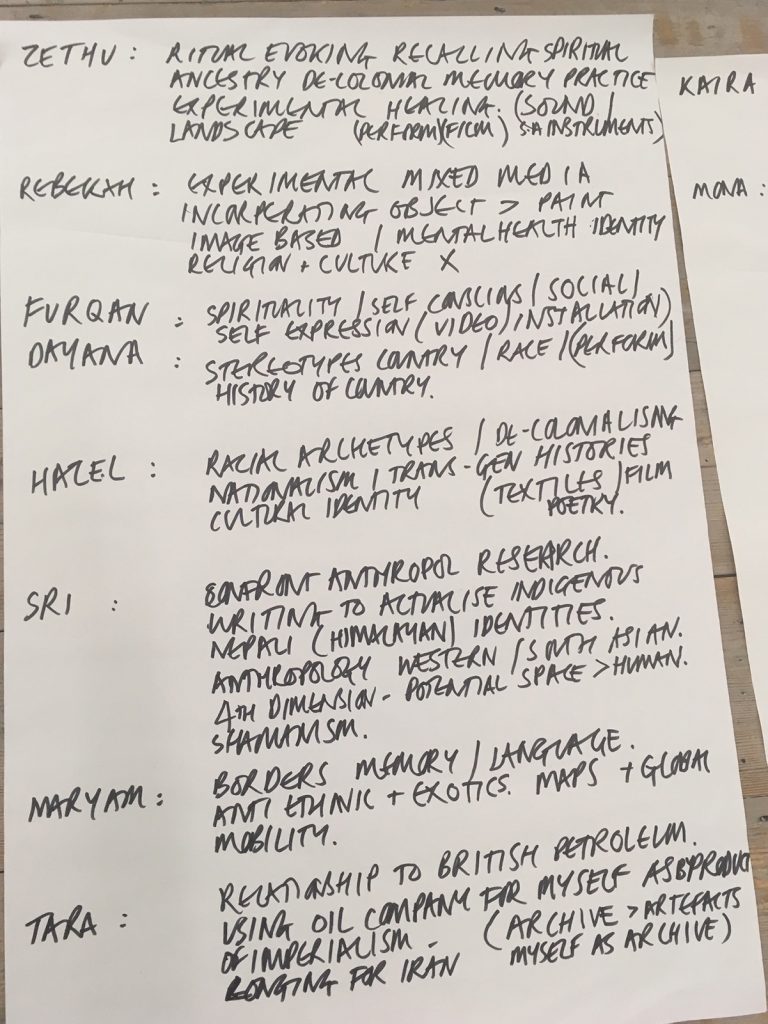 ZETHU : RITUAL EVOKING RECALLING SPIRITUAL
ANCESTRY DE-COLONIAL MEMORY PRACTICE
EXPERIMENTAL HEALING. (SOUND /
LANDSCAPE (PERFORM)(FILM) S.A INSTRUMENTS)
REBEKAH : EXPERIMENTAL MIXED MEDIA
INCORPERATING OBJECT > PAINT
IMAGE BASED / MENTAL HEALTH IDENTITY
RELIGION + CULTURE X
FURQAN : SPIRITUALITY / SELF CONSCIUS / SOCIAL /
SELF EXPRESSION (VIDEO / INSTALLATION)
DAYANA : STEREOTYPES COUNTRY / RACE / (PERFORM)
HISTORY OF COUNTRY.
HAZEL : RACIAL ARCHETYPES / DE-COLONIALISING
NATIONALISM / TRANS-GEN HISTORIES
CULTURAL IDENTITY (TEXTILES) FILM
POETRY.
SRI : CONFRONT ANTHROPOL RESEARCH.
WRITING TO ACTUALISE INDIGENOUS
NEPALI (HIMALAYAN) IDENTITIES.
ANTHROPOLOGY WESTERN / SOUTH ASIAN.
4TH DIMENSION - POTENTIAL SPACE > HUMAN.
SHAMANISM.
MARYAM : BORDERS MEMORY / LANGUAGE.
ANTI ETHNIC + EXOTICS. MAPS + GLOBAL
MOBILITY.
TARA : RELATIONSHIP TO BRITISH PETROLEUM.
USING OIL COMPANY FOR MYSELF AS BYPRODUCT
OF IMPERIALISM - (ARCHIVE > ARTEFACTS
LONGING FOR IRAN MYSELF AS ARCHIVE)
KAIRA
MONA :